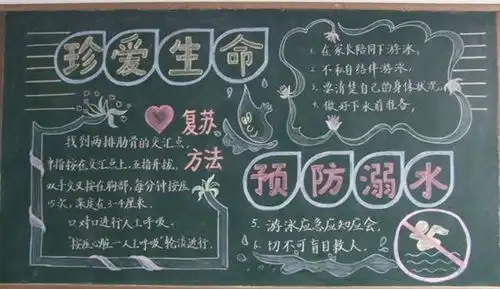 珍爱生命
1. 在家长陪同下游泳,
2. 不私自结伴游泳,
3. 要清楚自己的身体状况,
4. 做好下水前准备,
复苏
方法
找到两排肋骨的交汇点,
中指按在交汇点上,五指并拢,
双手交叉按在胸部,每分钟按压
15次,深度在3-4厘米,
口对口进行人工呼吸,
"按压心脏-人工呼吸"轮流进行,
预防溺水
5. 游泳应急应知应会,
6. 切不可盲目救人,